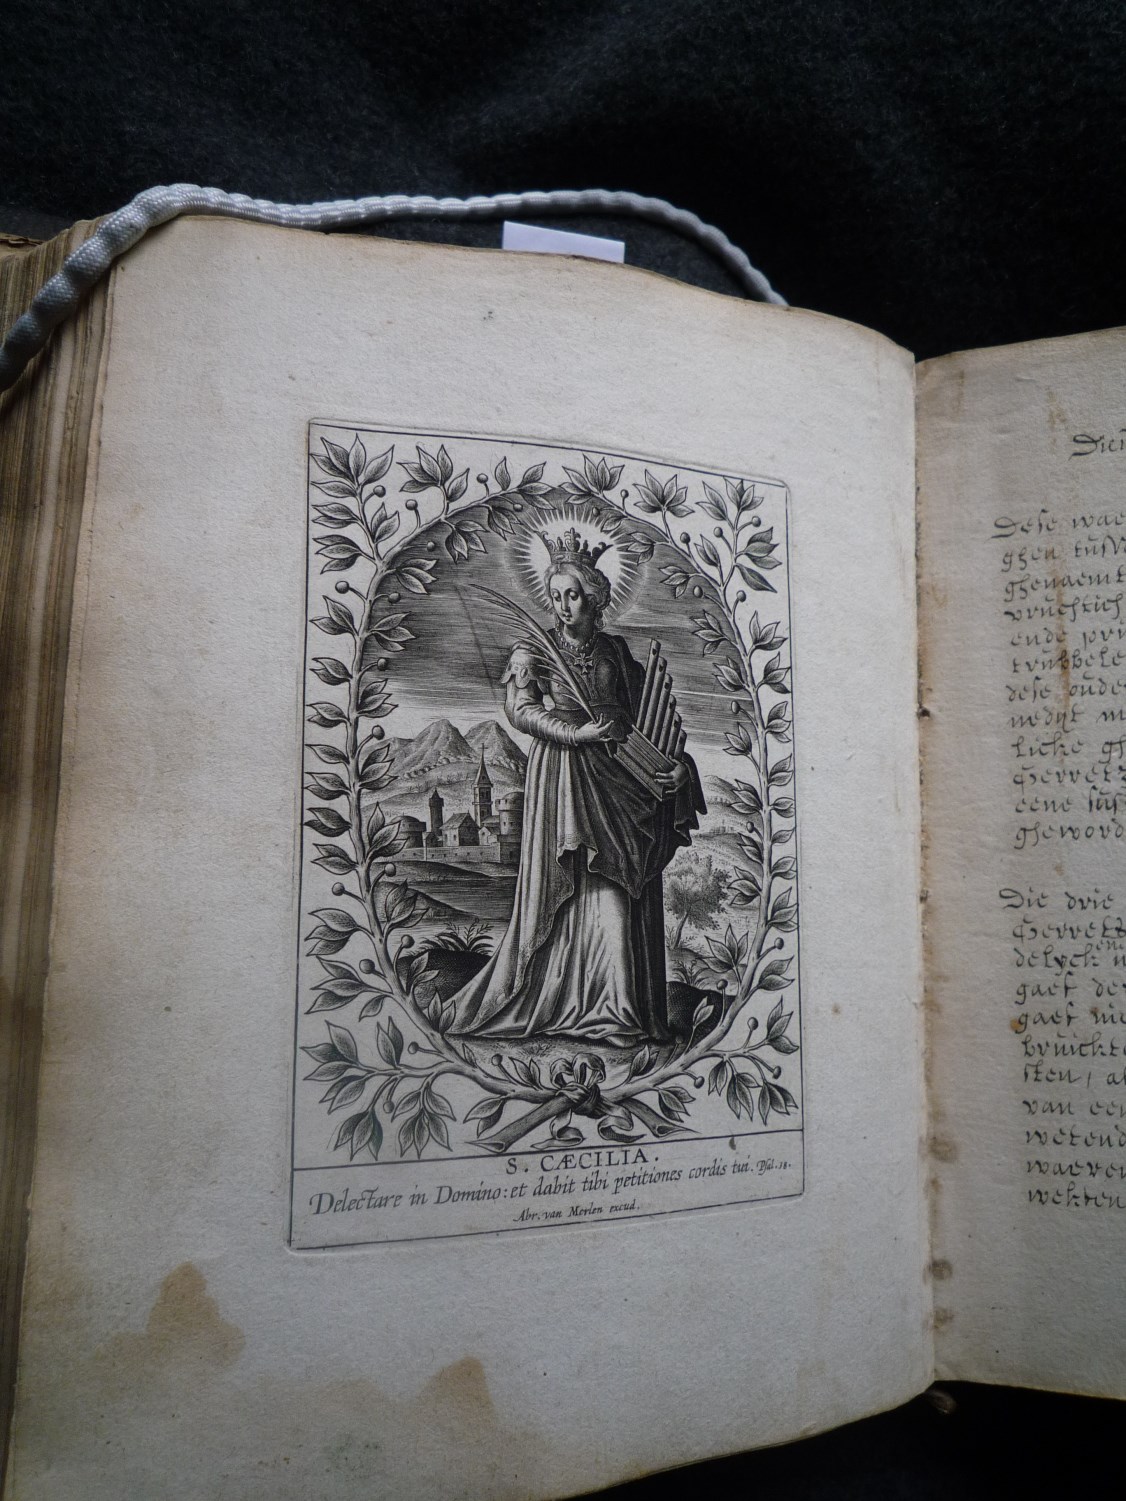 S. CÆCILIA.
Delectare in Domino: et dabit tibi petitiones cordis tui. Psal. 18.
Abr. van Merlen excud.
Dese wae
ghen tuss
ghenaemt
vruchtich
ende
trubbele
dese oude
licke gh
Gerretz
eene sus
gheword
Die drie
Gerretz
delyck
gaef de
gaef nie
bruickte
sten, al
van een
wetend
waeren
wekten